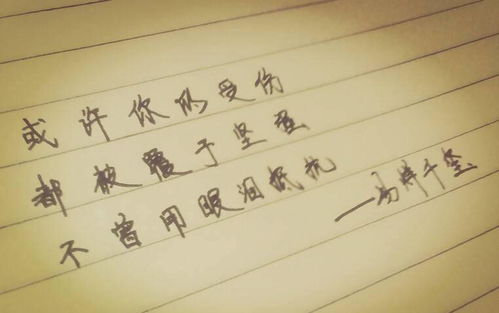 或许你的受伤
都被覆于坚
不曾用眼泪抵抗
——易烊千玺